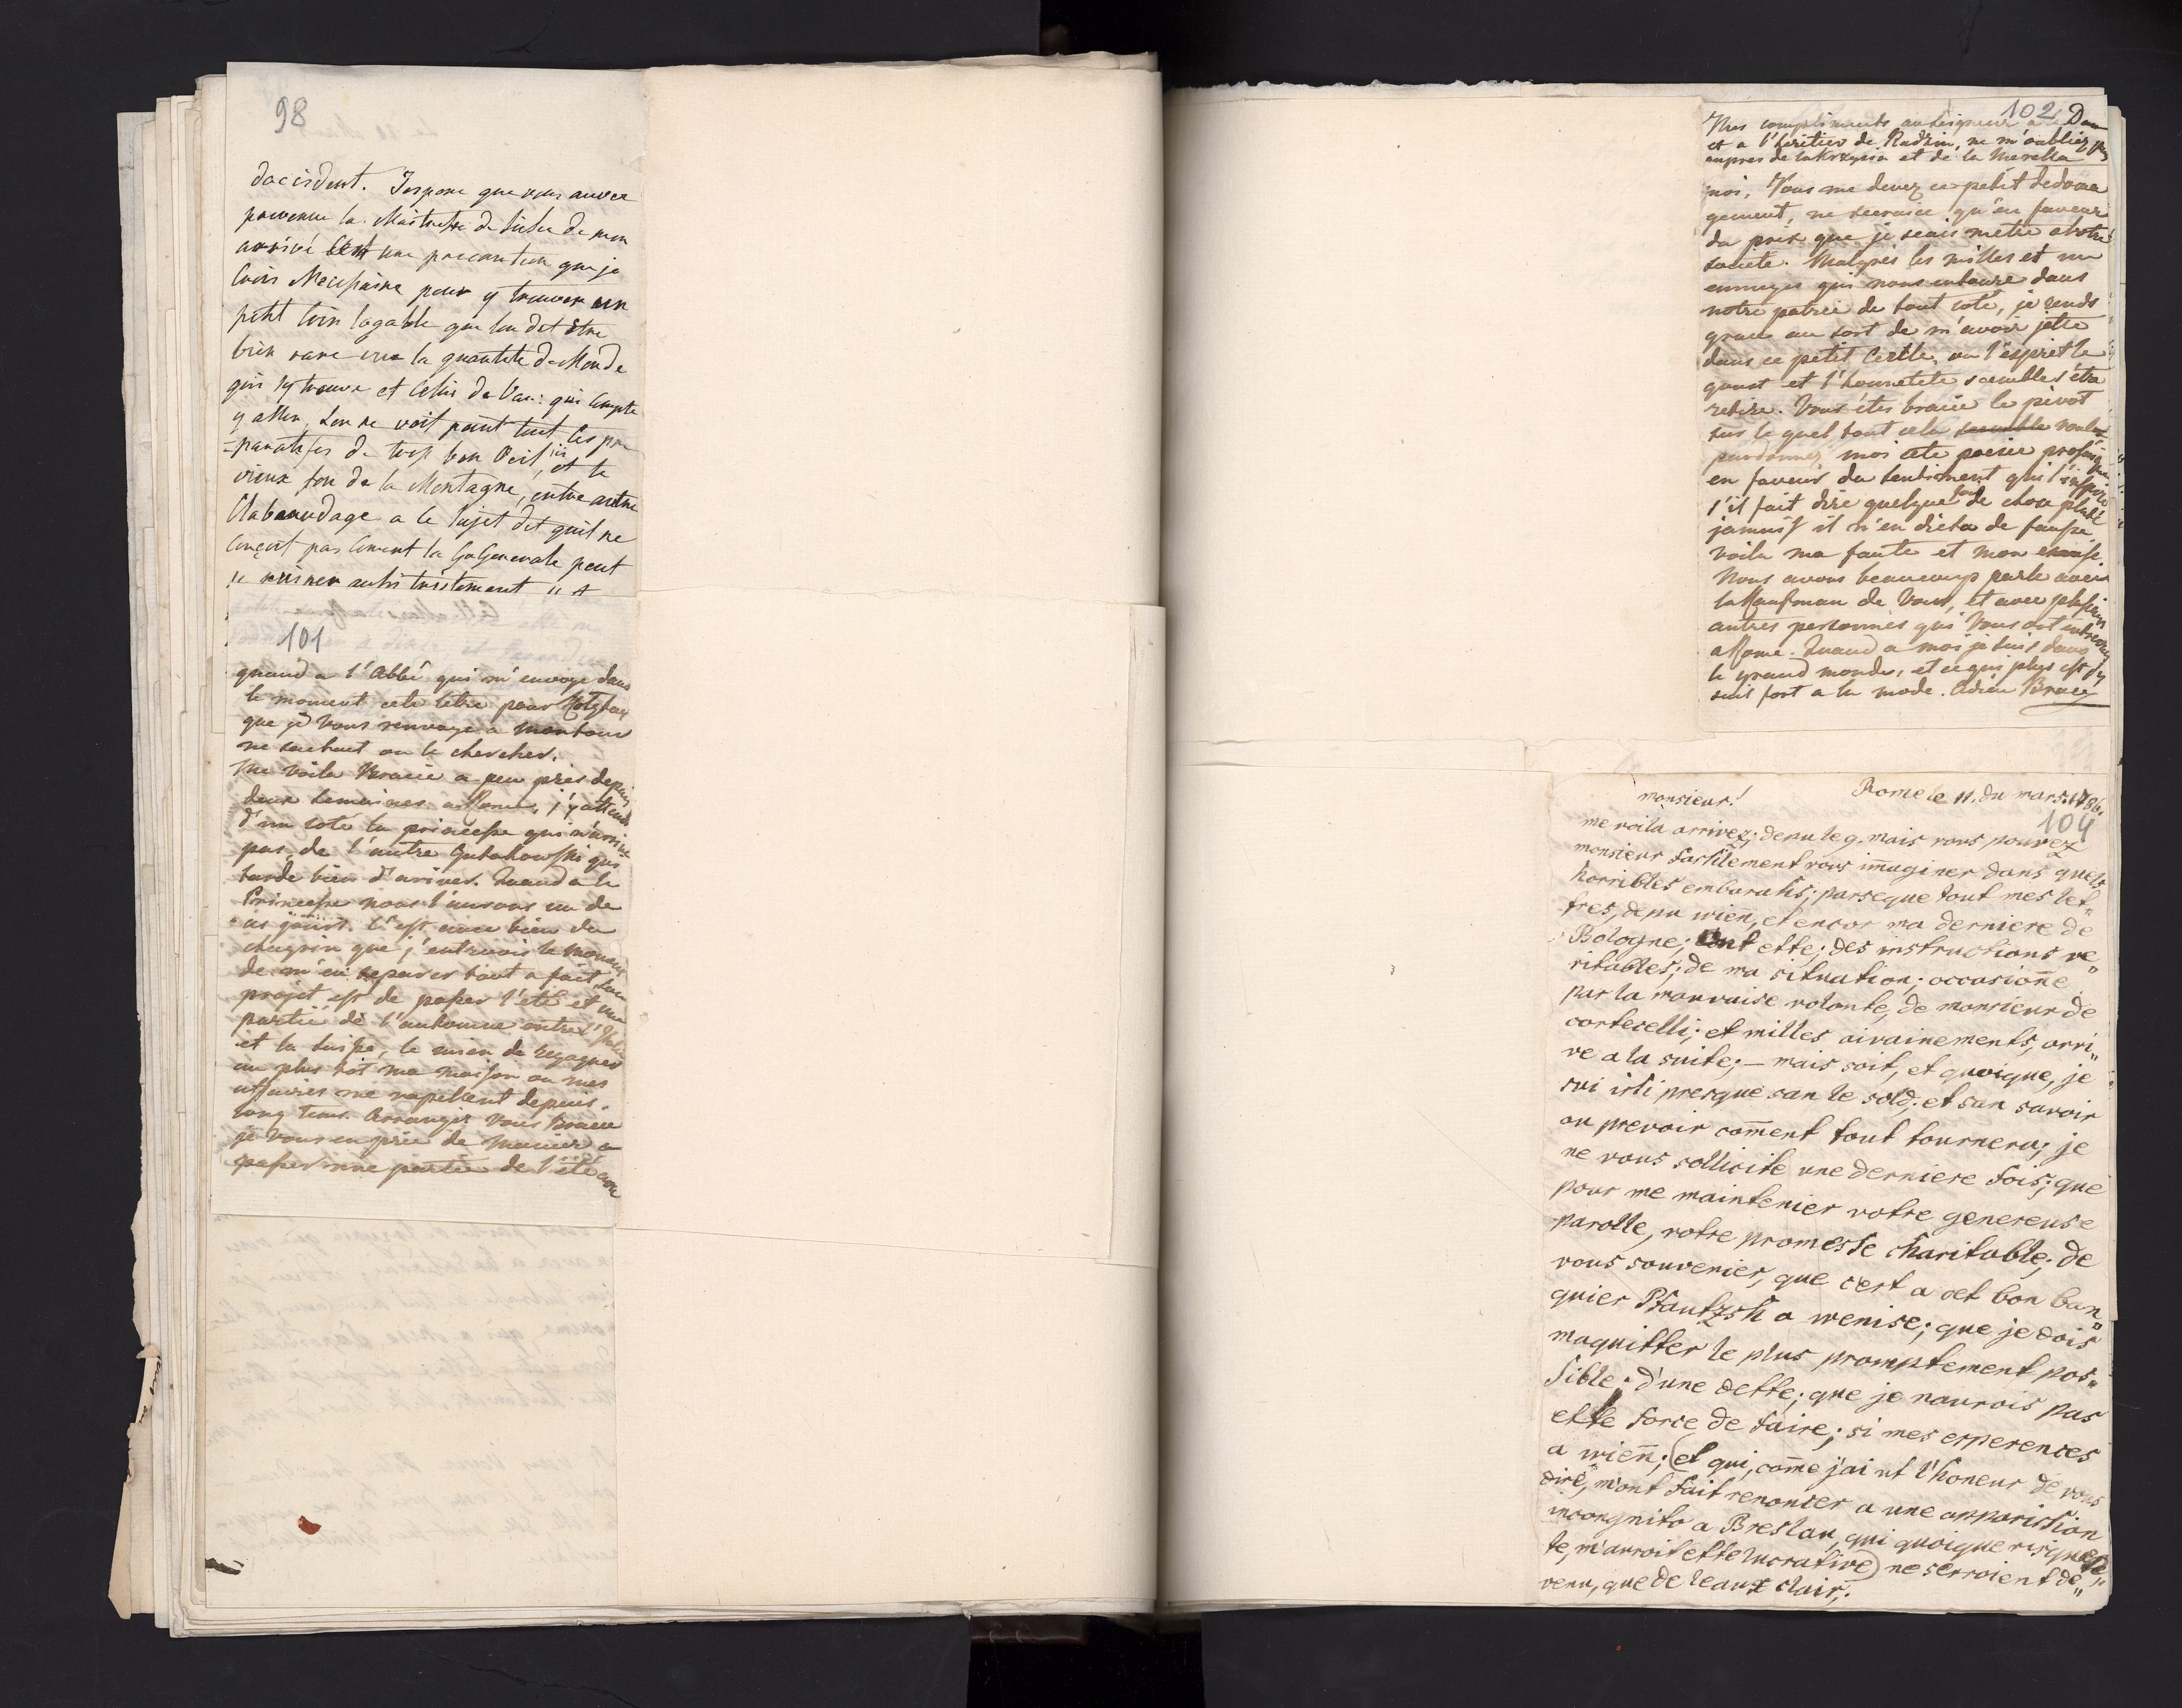 98
daccident. Jespere que vous auvez
prevenue la Maitresse de de mon
arrivé C'est une precaution que je
Crois Necessaire pour y trouver un
petit Coin logable que lon dit être
bien rare vue la quantité de Monde
qui sy trouve et Celui de Var: qui Compte
y aller, Lon ne voit point tout Ces pre
=paratifes de trop bon Oeil ici, et le
vieux fou de la Montagne, entre autre
Clabaudage a le Sujet dit quil ne
Conçoit pas Coment la Generale peut
"ruiner aussi tristement" A
101
quand a l'Abbé qui m'envoye dans
le moment cete lettre pour
que je Vous renvoye a Montour
ne sachant ou le chercher.
Me voila Brave a peu près depuis
deux Semaines a Rome, j'y attends
d'un coté la princesse qui n'arrive
pas, de l'autre Gutakowski qui
tarde bien d'arriver. Quand a la
Princesse nous l'aurons un de
ces jours. C'est avec bien du
chagrin que j'entrevois le moment
de m'en separer tout a fait son
projet est de passer l'eté et une
partie de l'automne entre l'Italie
et la Suisse, le mien de regagner
au plus tôt ma maison ou mes
affaires me rapellent depuis
long tems. Arrangez Vous Brave
je Vous en prie de maniere a
passer une partie de l'été avec
102
Mes compliments au Seigneur a la Dame
et a l'heritier de Radzin, ne m'oubliez pas
aupres de la et de la Mirella
moi, Vous me devez ce petit dedoma
gement, ne seeroice qu'en faveur
du prix que je scais metre a votre
societé. Malgrés les milles et un
ennuyes qui nous entoure dans
notre patrie de tout coté, je rends
grace au sort de m'avoir jetté
dans ce petit Cercle, ou l'esprit le
goust et l'honneteté scemble s'être
retiré. Vous étes brave le pivot
sur le quel tout cela semble roule
pardonnez moi cete poesie prosaique
en faveur du sentiment qui l'inspire
s'il fait dire quelque fois de chose plate
jamais il n'en dicta de fausse
voila ma faute et mon excuse.
Nous avons beaucoup parlé avec
la Kaufman de Vous, et avec plusieurs
autres personnes qui Vous ont
a Rome. Quand a moi je suis dans
le grand monde, et ce qui plus est j'y
suis fort a la mode. Adieu Brave
Rome le 11. du mars. 1786.
104
monsieur!
me voila arrivez; depu le 9. mais vous pouvez
monsieur fassilement vous imaginer dans quels
horribles embarahs; parseque tout mes let"
tres, depu wien, et encor ma derniere de
Bologne; Ont ette; des instructions ve"
ritables; de ma situation; occasione
par la mauvaise volonte, de monsieur de
cortecelli; et milles aivainements, arri"
ve a la suite; - mais soit, et quoique, je
sui isti presque san le sold; et san savoir
ou prevoir coment tout tournera; je
ne vous sollicite une derniere fois; que
pour me maintenier votre genereuse
parolle, votre promesse charitable; de
vous souvenier, que c'est a cet bon ban"
quier Pfautzsh a wenise; que je dois
maquitter le plus promptement pos"
sible; d'une dette; que je naurois pas
ette force de faire; si mes esperences
a wien; (et qui, come j'ai ut l'honeur de vous
dire, m'ont fait renoncer a une apparission
incongnito a Breslau, qui quoique risquee,"
te, m'auroit ette lucrative) ne serroient de"
venu, que de leaux clair;.